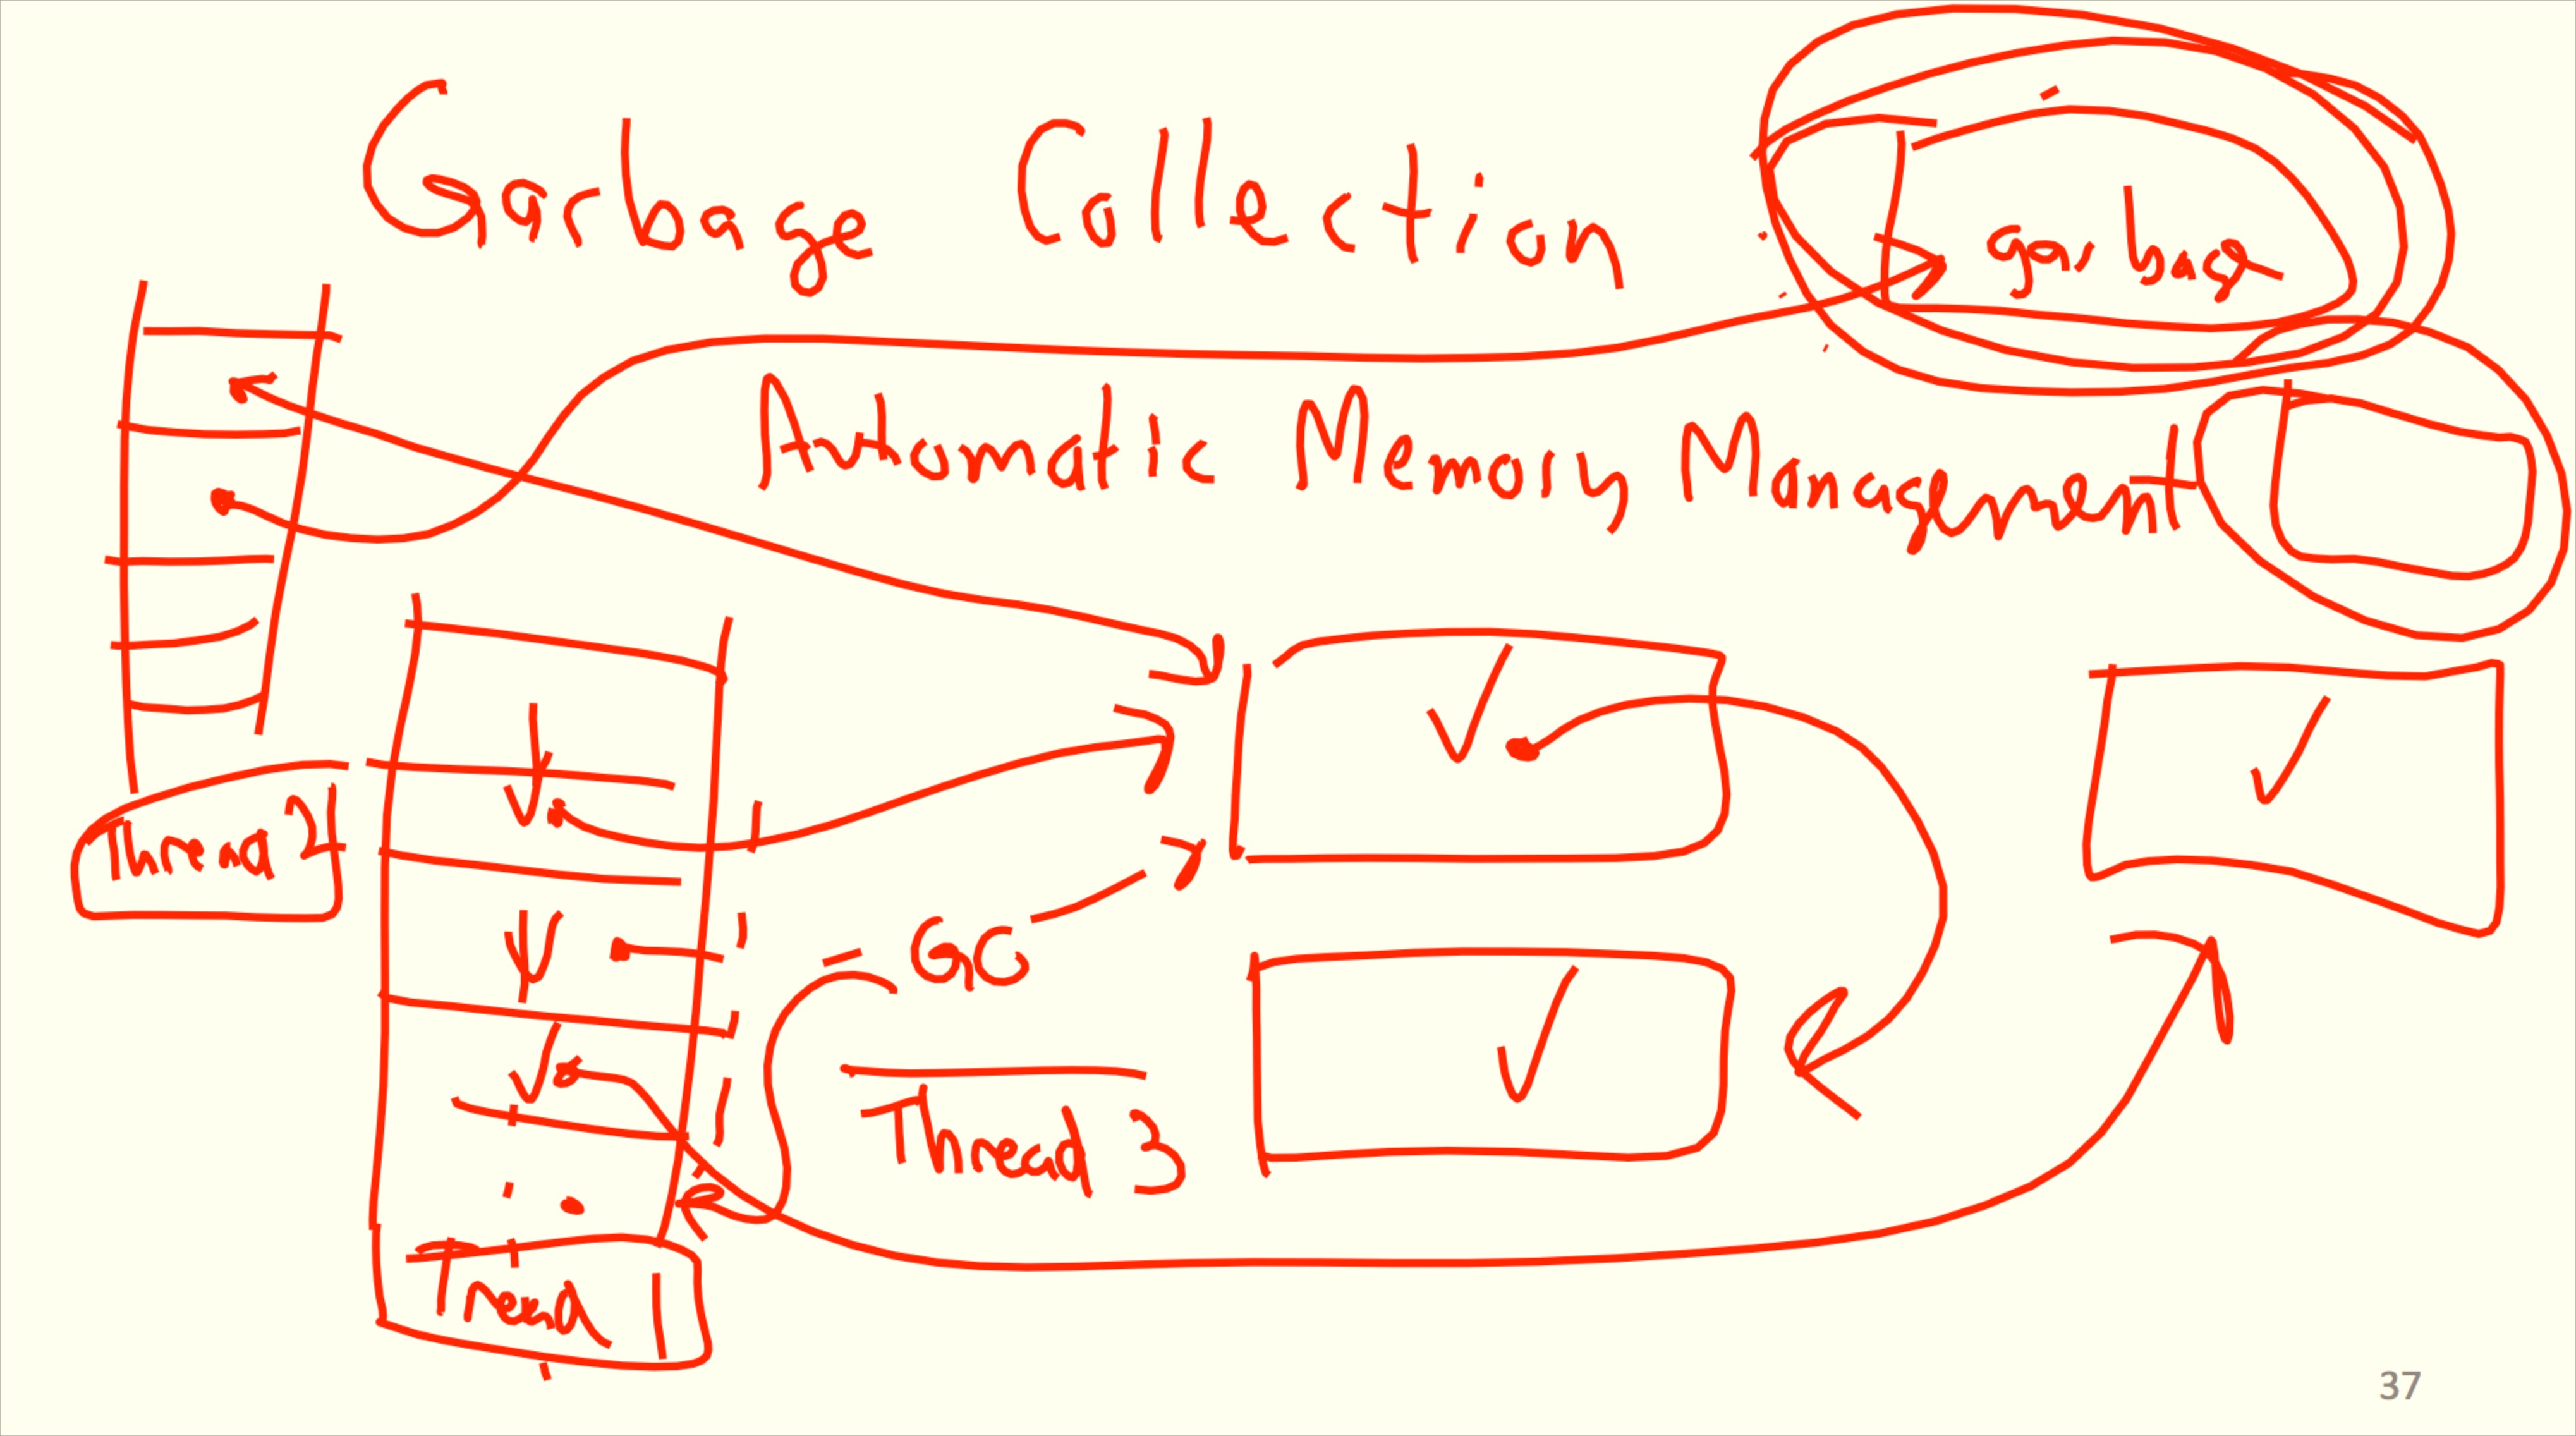 Garbage Collection
garbage
Automatic Memory Management
Thread 2
GC
Thread 3
Thread 1
37